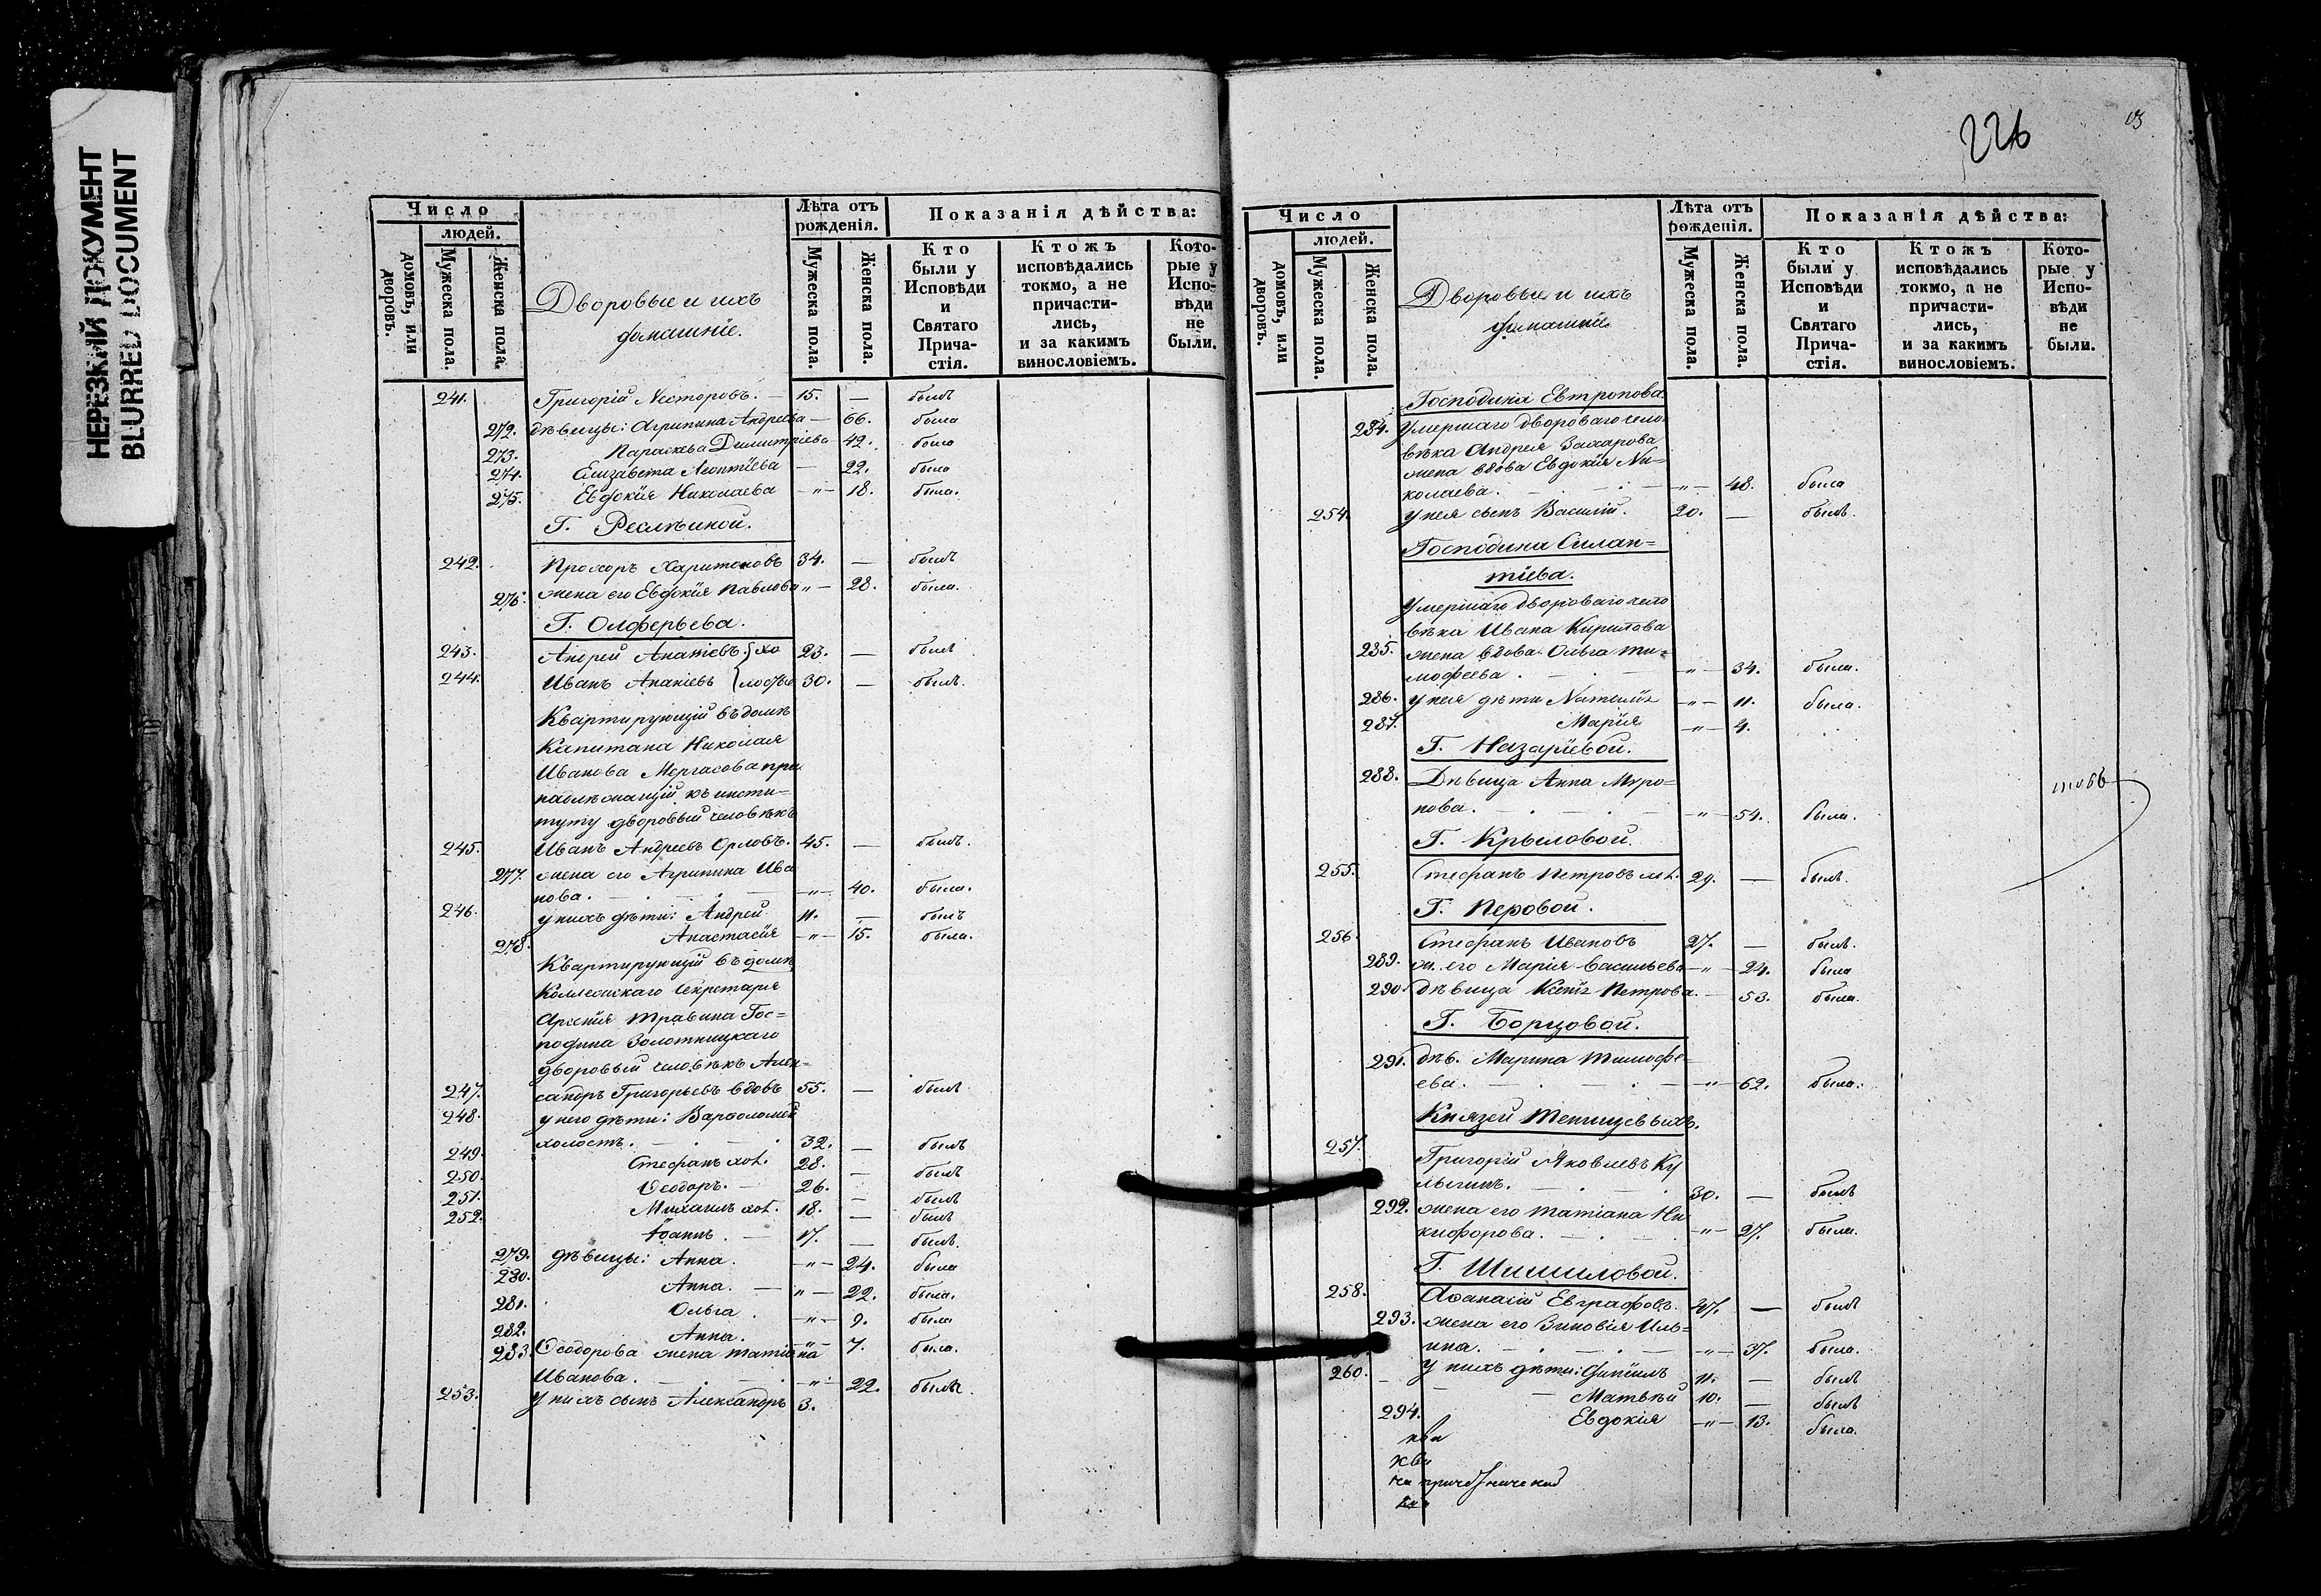 НЕРЕЗКИЙ ДОКУМЕНТ
BLURRED DOCUMENT
Число
людей.
домовъ, или дворовъ.
Мужеска пола.
Женска пола.
Дворовые и ихъ
домашніе.
Лѣта отъ рожденія.
Мужеска пола.
Женска пола.
Показанія дѣйства:
Кто были у Исповѣди и Святаго Прича-стія.
Ктожъ исповѣдались токмо, а не причасти-лись, и за какимъ винословіемъ.
Кото-рые у Испо-вѣди не были.
241. Григорій Несторовъ. 15. — былъ
272. дѣвицы: Агрипина Андреева — 66. была
273. Параскева Димитріева 42. была
274. Елизавета Леонтіева — 22. была
275. Евдокія Николаева —"— 18. была.
Г.
242. Прохоръ Харитоновъ 34. — былъ
276. жена его Евдокія Павлова "— 28. была.
Г. Олферьева.
243. Андрей Ананіевъ. } хо 23. — былъ
244. Иванъ Ананіевъ } лосты 30. — былъ.
Квартирующій въ домѣ
Капитана Николая
Иванова Мергасова при
надлежащій къ инсти=
туту дворовый человѣкъ
245. Иванъ Андреевъ Орловъ. 45. — былъ.
277. жена его Агрипина Ива
нова. —"— 40. была.
246. у нихъ дѣти: Андрей 11. — былъ
278. Анастасія —"— 15. была.
Квартирующій въ домѣ
Коллежскаго Секретаря
Арсенія Травина Гос=
подина Золотницкаго
дворовый человѣкъ Алек=
247. сандръ Григорьевъ вдовъ 55. — былъ
248. у него дѣти: Варѳоломей
холостъ. 32. — былъ
249. Стефанъ хол. 28. — былъ
250. Ѳеодоръ. — 26. — былъ
251. Михаилъ хол. 18. — былъ
252. Іоаннъ. — 17. — былъ.
279. дѣвицы: Анна. —"— 24. была
280. Анна. — "— 22. была.
281. Ольга. —"— 9. была
282. Анна. —"— 7. была.
283. Ѳеодорова жена Татіана
Иванова. —"— 22. была.
253. У нихъ сынъ Александръ 3.
226
Число
людей.
домовъ, или дворовъ.
Мужеска пола.
Женска пола.
Дворовые и ихъ
домашніе.
Лѣта отъ рожденія.
Мужеска пола.
Женска пола.
Показанія дѣйства:
Кто были у Исповѣди и Святаго Прича-стія.
Ктожъ исповѣдались токмо, а не причасти-лись, и за какимъ винословіемъ.
Кото-рые у Испо-вѣди не были.
Господина Евтропова
284. Умершаго двороваго чело
вѣка Андрея Захарова
жена вдова Евдокія Ни=
колаева. —"— 48. была
254. у нея сынъ Василій. 20. — былъ.
Господина Силан=
тіева.
Умершаго двороваго чело
вѣка Ивана Кирилова
285. жена вдова Ольга Ти=
мофеева. —"— 34. была.
286. у нея дѣти Наталія —"— 11. была.
287. Марія —"— 4.
Г. Назаріевой.
288. Дѣвица Анна Миро=
нова. —"— 54. была.
Г. Крыловой.
255. Стефанъ Петровъ хол. 29. — былъ.
Г. Перовой.
256. Стефанъ Ивановъ 27. — былъ.
289. ж. его Марія Васильева —"— 24. была
290. дѣвица Ксенія Петрова. — 53. была.
Г. Борцовой.
291. дѣв. Марина Тимофе=
ева. —"— 62. была.
Князей Тенишевыхъ.
257. Григорій Яковлевъ Ку
лыгинъ. 30. — былъ
292. жена его Татіана Ни
кифорова. —"— 27. была.
Г. Шишиловой.
258. Аѳанасій Евграфовъ. 37. — былъ
293. жена его Зиновія Иль=
ина. —"— 37. была.
У нихъ дѣти: 11. — былъ
260. Матвѣй 10. — былъ
294. Евдокія —"— 13. была.